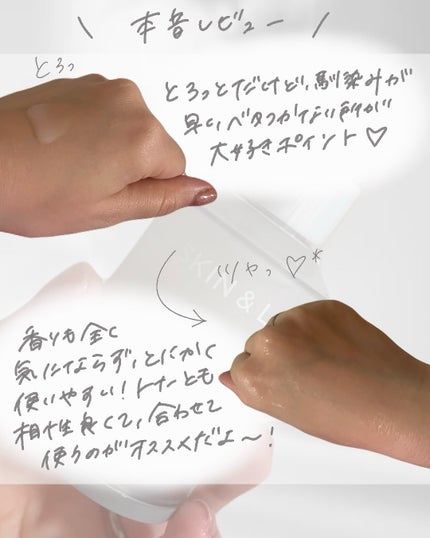 \ 本音レビュー /
とろっ
とろっとだけど、馴染みが
早い、ベタつかない所が
大好きポイント♡
SKIN & L
ツヤっ♡*
香りも全く
気にならず、とにかく
使いやすい！トナーとも
相性良くて、合わせて
使うのがオススメだよ〜！